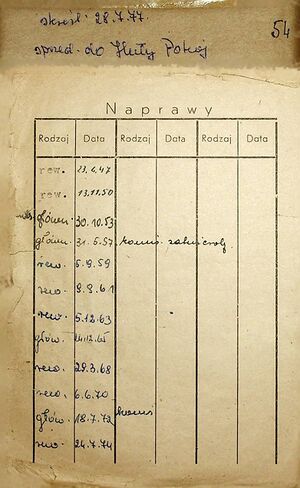 skreśl. 28.7.77.
sprzed. do Huty Pokój
54
Naprawy
Rodzaj Data Rodzaj Data Rodzaj Data
rew. 23.6.47
rew. 13.11.50
główn. 30.10.53
główn. 31.5.57
rew. 5.9.59
rew. 9.9.61
rew. 5.12.63
główn. 21.12.65
rew. 29.3.68
rew. 6.6.70
główn. 18.7.72
rew. 24.7.74